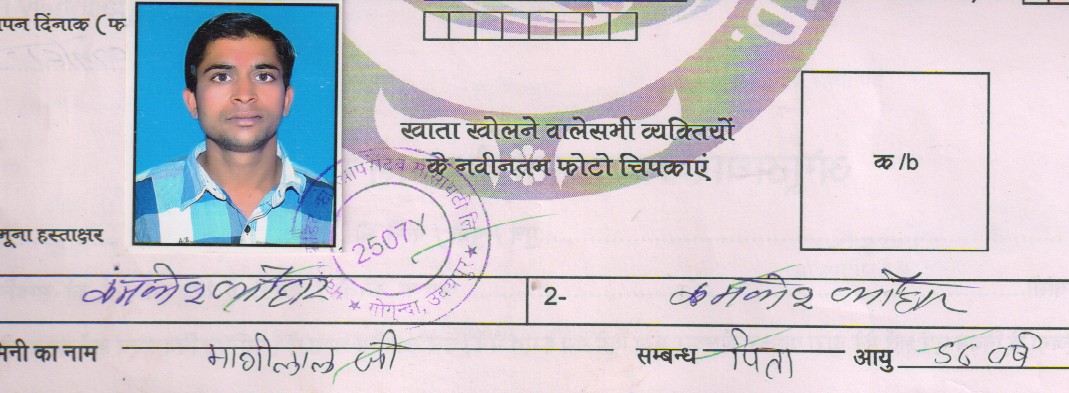 ापन दिंनाक ( फ
खाता खोलने वालेसभी व्यक्तियों
के नवीनतम फोटो चिपकाएं
क /b
2507Y
गोगुन्दा, उदयपुर
मूना हस्ताक्षर
कमलेश लौहार
2-
कमलेश लौहार
मनी का नाम
मांगीलाल जी
सम्बन्ध पिता आयु 56 वर्ष